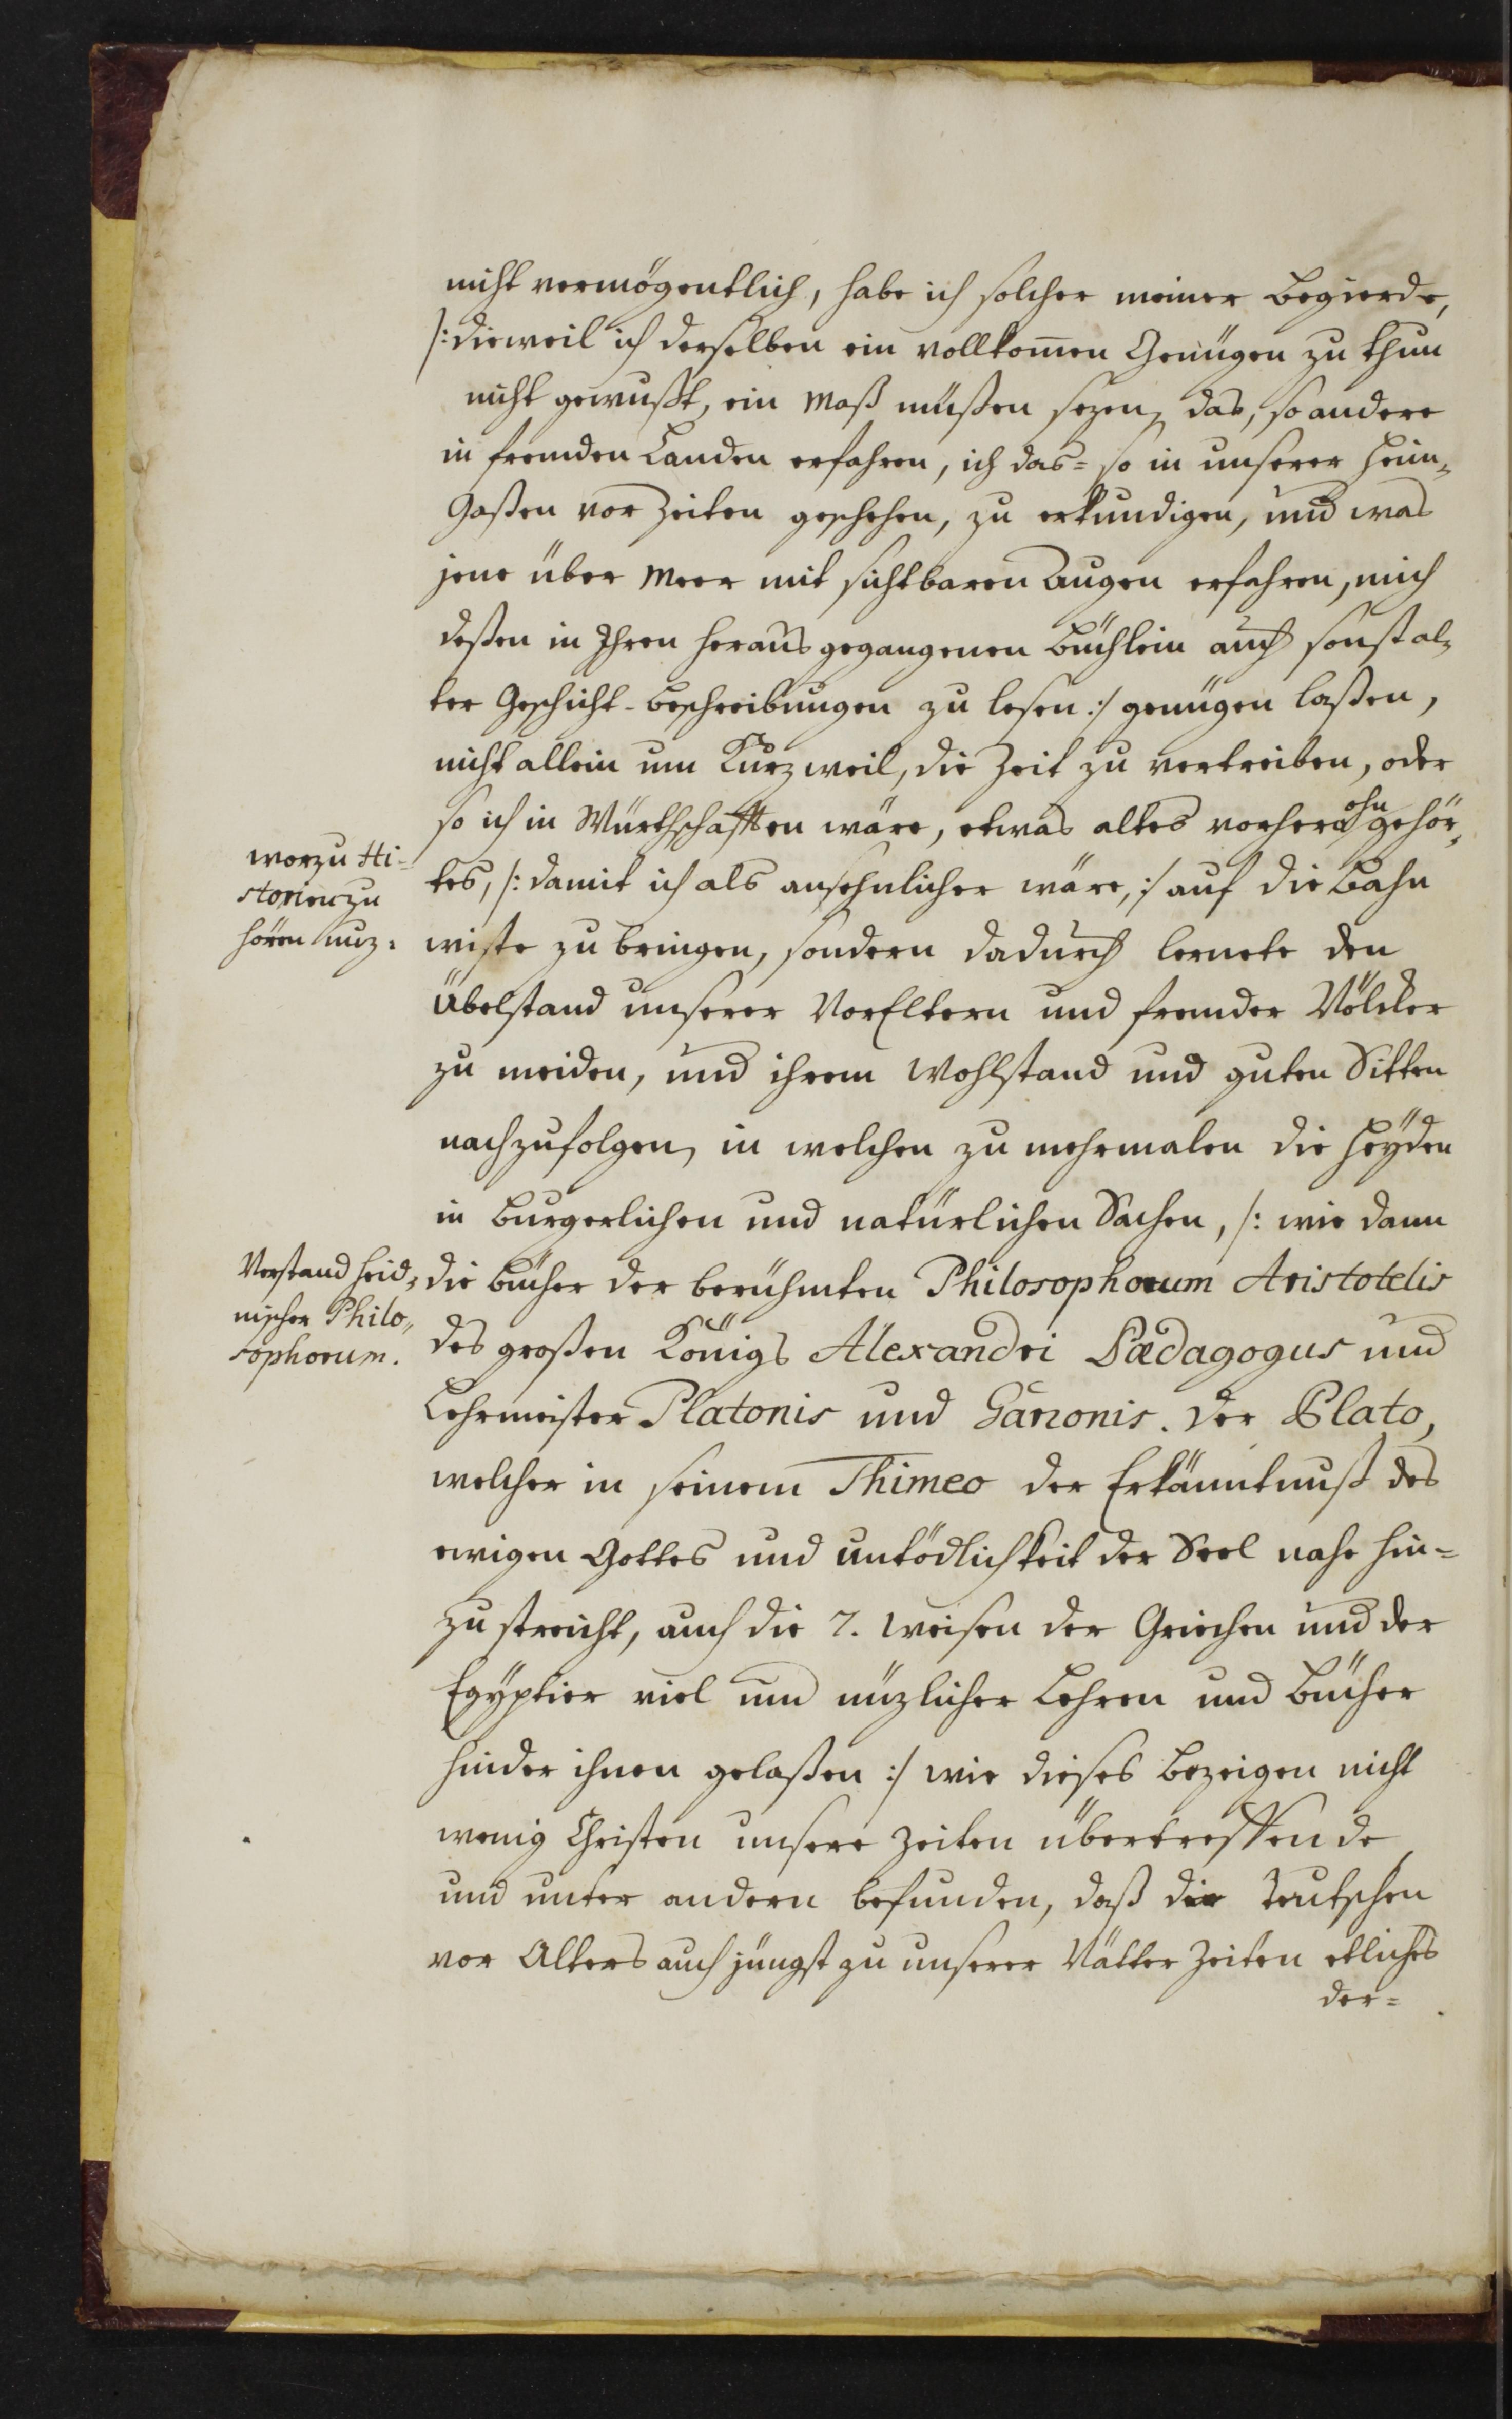 nicht vermögentlich, habe ich solcher meiner Begierde,
/: dieweil ich derselben ein vollkom̄en Genügen zu thun
nicht gewußt, ein Maß müßen sezen, das, so andere
in fremden Landen erfahren, ich das= so in unserer Heim-
Gaßen vor Zeiten geschehen, zu erkundigen, und was
jene über Meer mit sichtbaren Augen erfahren, mich
deßen in Ihren heraus gegangenen Büchlein auch sonst al-
ter Geschicht-Beschreibungen zu lesen :/ genügen laßen,
nicht allein um Kurzweil, die Zeit zu vertreiben, oder
so ich in Würthschafften wäre, etwas altes vorher ohngehör-
worzu Hi-
storien zu
hören nuz.
tes, /: damit ich als ansehnlicher wäre, :/ auf die Bahn
wiste zu bringen, sondern dadurch lernete den
Übelstand unserer VorEltern und fremder Völcker
zu meiden, und ihrem Wohlstand und guten Sitten
nachzufolgen, in welchen zu mehrmalen die Heÿden
in Burgerlichen und natürlichen Sachen, /: wie dann
Verstand heid-
nischer Philo-
sophorum.
die Bücher der berühmten Philosophorum Aristotelis
des großen Königs Alexandri Pædagogus und
Lehrmeister Platonis und der Plato,
welcher in seinem Thimeo der Erkänntnuß des
ewigen Gottes und untödlichkeit der Seel nahe hin=
zu streicht, auch die 7. Weisen der Griechen und der
Egÿptier viel und nüzlicher Lehren und Bücher
hinder ihnen gelaßen :/ wie dieses bezeigen nicht
wenig Christen unsere Zeiten übertreffende
und unter andern befunden, daß die Teutschen
vor Alters auch jüngst zu unserer Vätter Zeiten etliches
der=